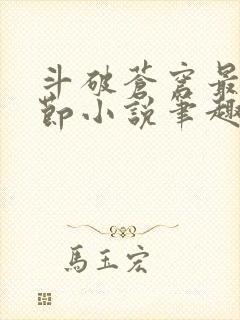 斗破蒼穹最
節小說筆趣
馬玉宏